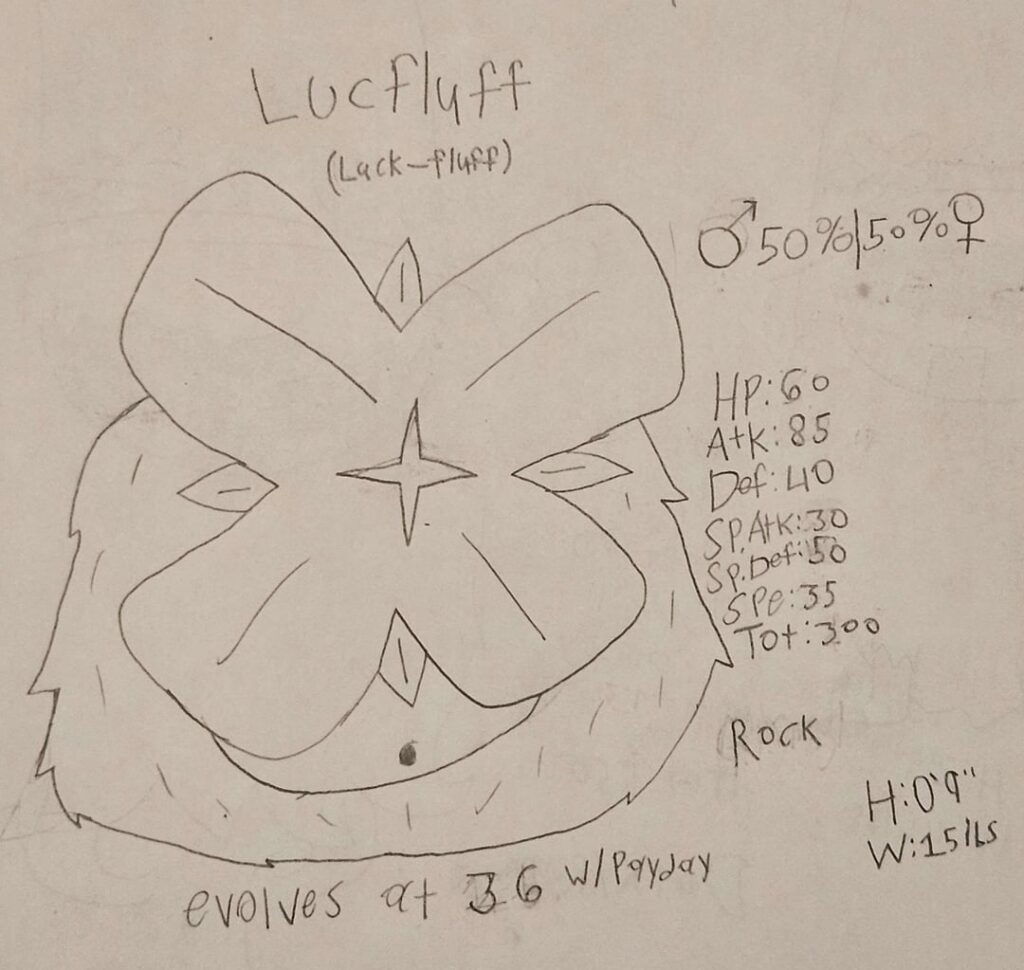 Lucfluff
(Luck-fluff)
♂50%|50%♀
HP:60
Atk:85
Def:40
SP.Atk:30
Sp.Def:50
SPe:35
Tot:300
Rock
H:0'9"
W:15lbs
evolves at 36 w/Payday